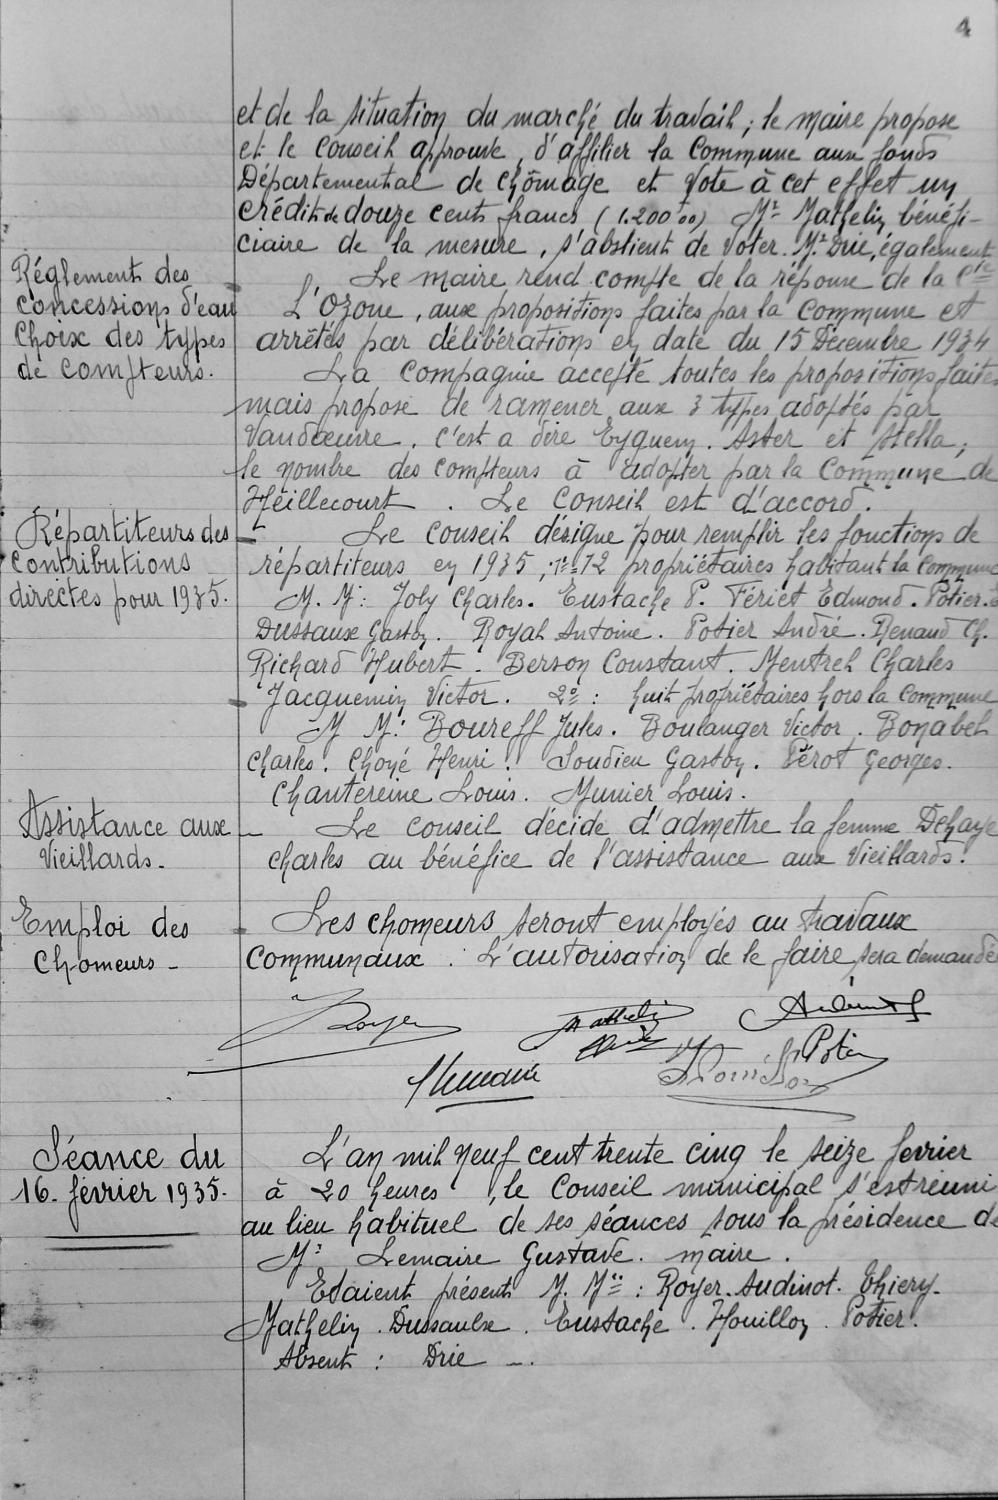 4
et de la situation du marché du travail ; le maire propose
et le Conseil approuve, d'affilier la Commune aux fonds
Départemental de chômage et vote à cet effet un
crédit de douze cents francs (1.200 00) Mr Mathelin bénéfi-
ciaire de la mesure, s'abstient de voter. Mr Drie, également
Réglement des
concessions d'eau
choix des types
de compteurs.
Le maire rend compte de la réponse de la Cie
L'Ozone, aux propositions faites par la Commune et
arrêtés par délibérations en date du 15 Décembre 1934
La Compagnie accepte toutes les propositions faites
mais propose de ramener aux 3 types adoptés par
Vandoeuvre, c'est a dire Eyquem. Aster et Stella,
le nombre des compteurs à adopter par la Commune de
Heillecourt. Le Conseil est d'accord.
Répartiteurs des
contributions
directes pour 1935.
Le Conseil désigne pour remplir les fonctions de
répartiteurs en 1935, : 12 propriétaires habitant la Commune
M. M : Joly Charles. Eustache P. Fériet Edmond. Potier.
Dussaux Gaston. Royal Antoine. Potier André. Renaud Ch.
Richard Hubert - Berson Constant. Mentrel Charles
Jacquemin Victor. 2° : huit propriétaires hors la Commune
M M : Boureff Jules. Boulanger Victor. Bonabel
Charles. Choyé Henri. Soudieu Gaston. Pérot Georges.
Chantereine Louis. Munier Louis.
Assistance aux
Vieillards -
Le Conseil décide d'admettre la femme Dehaye
Charles au bénéfice de l'assistance aux Vieillards.
Emploi des
Chomeurs -
Les chomeurs seront employés au travaux
Communaux. L'autorisation de le faire sera demandée
Royer
Mathelin
Audinot
Drie
Potier
Lemaire
Séance du
16. février 1935.
L'an mil neuf cent trente cinq le seize fevrier
à 20 heures, le Conseil municipal s'est réuni
au lieu habituel de ses séances sous la présidence de
Mr Lemaire Gustave. maire.
Etaient présents M. Mrs : Royer. Audinot. Thiery.
Mathelin. Dussaulx. Eustache. Houillon. Potier.
Absent : Drie -.